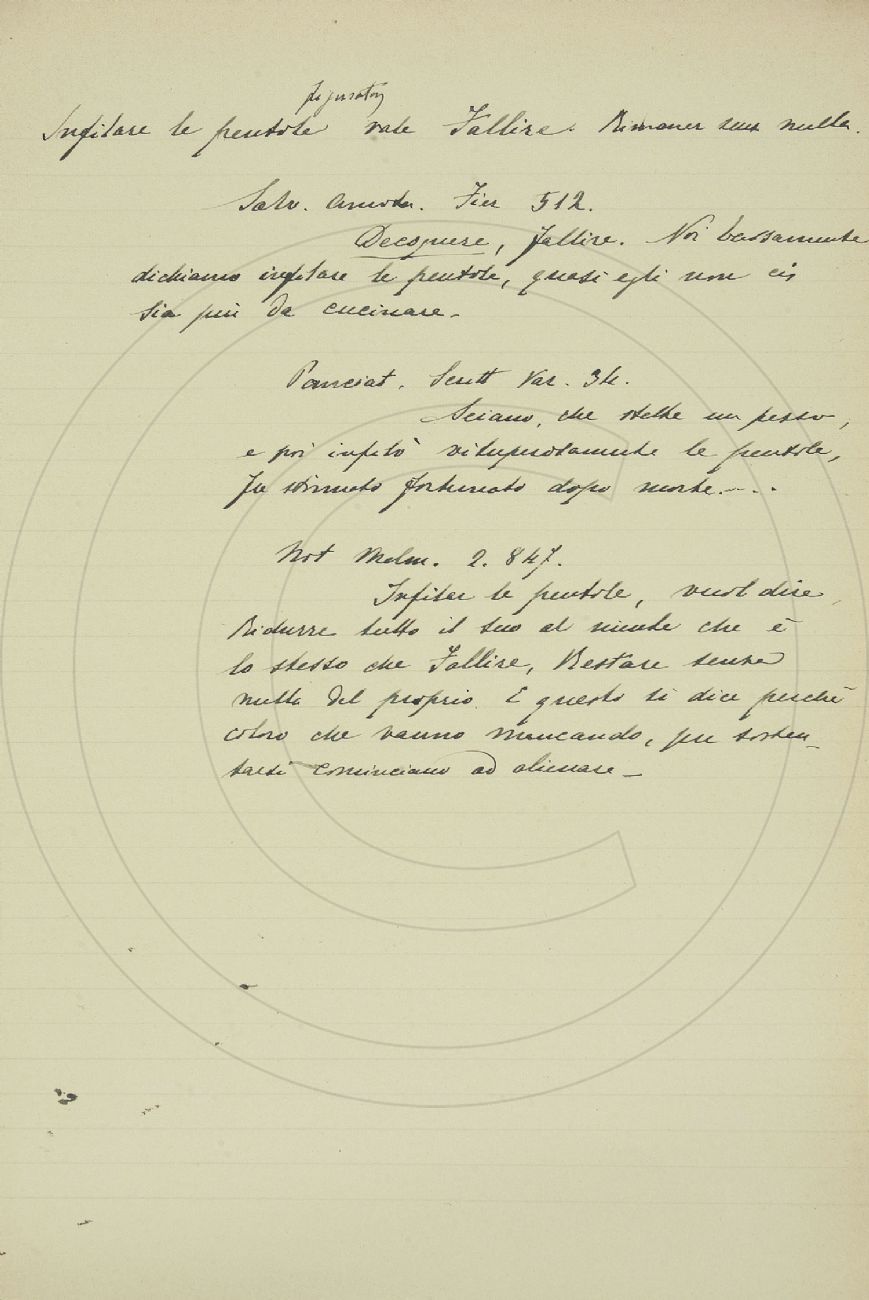 figuratam
Infilare le pentole vale Fallire. Rimaner senza nulla.
Salv. Annot. Fier 512.
Decoquere, fallire. Noi bassamente
dichiamo infilare le pentole, quasi egli non ci
sia più da cucinare.
Panciat. Scritt Var. 34.
Sciano, che stette un pezzo,
e poi infilò vituperosamente le pentole,
fu stimato fortunato dopo morte....
Not Malm. 2. 847.
Infilar le pentole, vuol dire
Ridurre tutto il suo al niente che è
lo stesso che Fallire, Restare senza
nulla del proprio. E questo si dice perchè
coloro che vanno mancando, per sosten-
tarsi cominciano ad alienare -